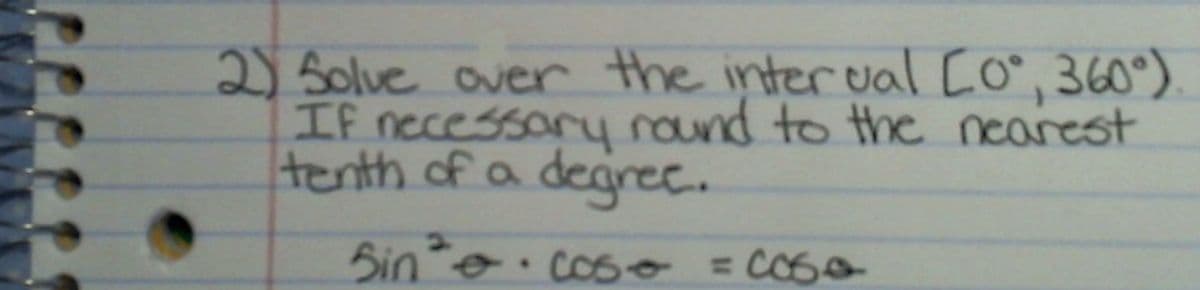 2) Solve over the interval [0°, 360°).
If necessary round to the nearest
tenth of a degree.
Sin²θ · cosθ = cosθ